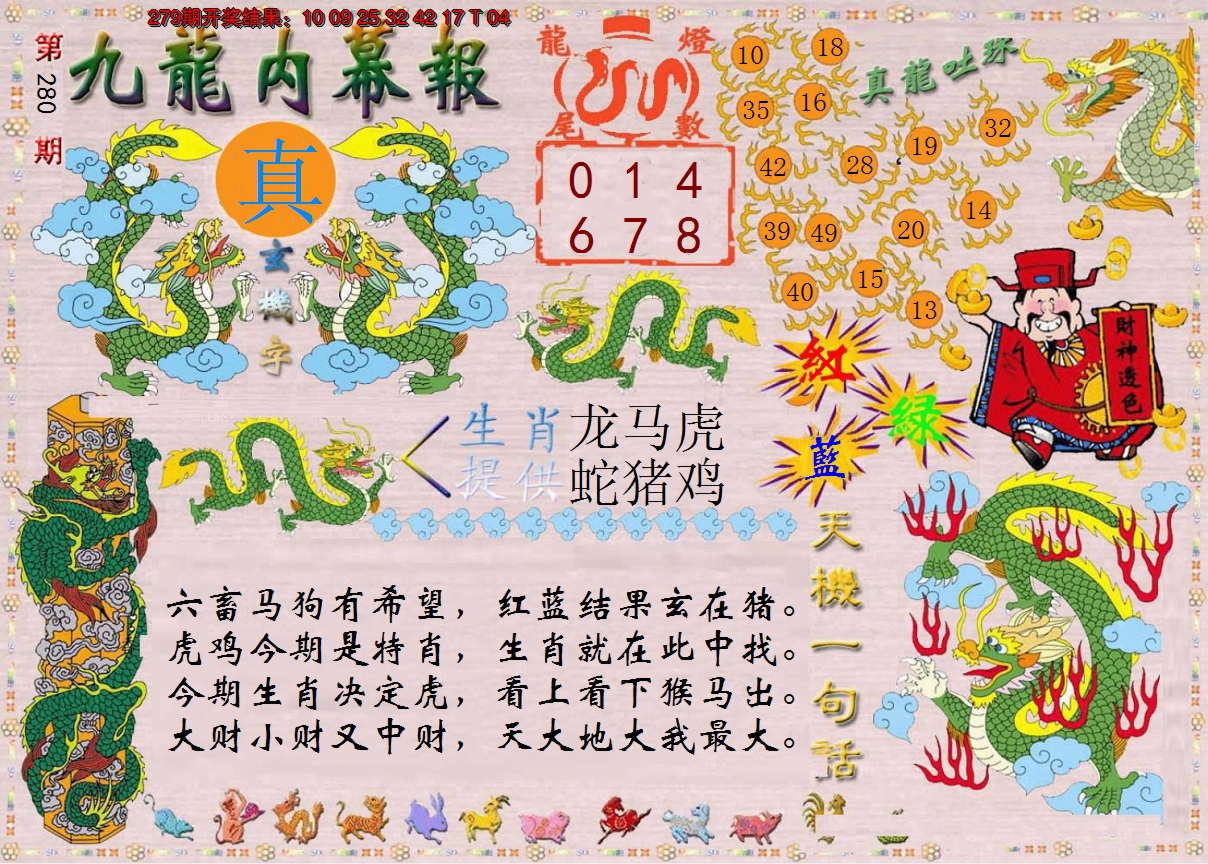 279期开奖结果：10 09 25 32 42 17 T 04
第280期
九龍内幕報
真
玄機字
龍燈
尾數
0 1 4
6 7 8
真龍吐珠
10 18
35 16
42 28 19 32
39 49 20 14
40 15 13
財神透色
紅
綠
藍
生肖 龙马虎
提供 蛇猪鸡
天機一句話
六畜马狗有希望，红蓝结果玄在猪。
虎鸡今期是特肖，生肖就在此中找。
今期生肖决定虎，看上看下猴马出。
大财小财又中财，天大地大我最大。